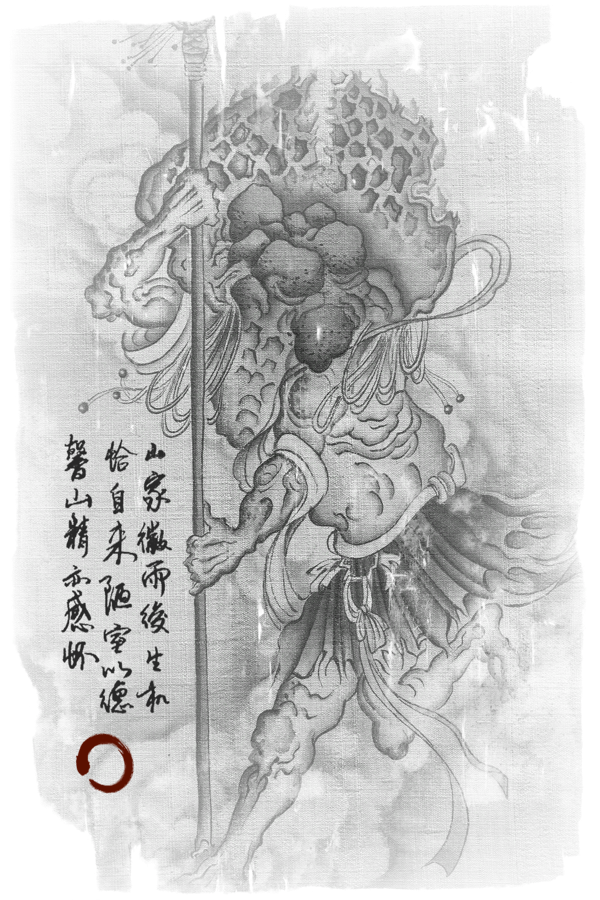 山家微雨後生机
恰自来陋室以德
馨山精亦感怀